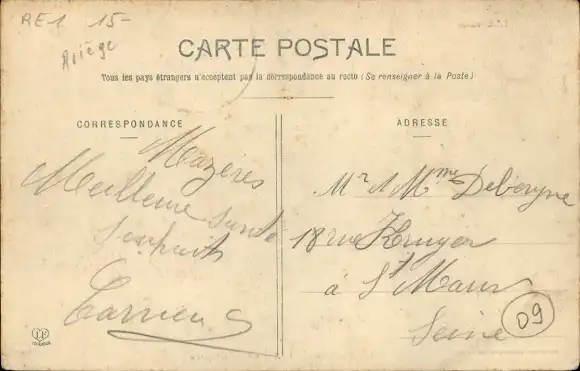 RE1 15-
Ariège
CARTE POSTALE
Tous les pays étrangers n'acceptent pas la correspondance au recto (Se renseigner à la Poste)
CORRESPONDANCE
Mazères
Meilleure Santé
Souhaits
ADRESSE
Mr & Mme
18 rue Kruger
à St Maur
Seine
09